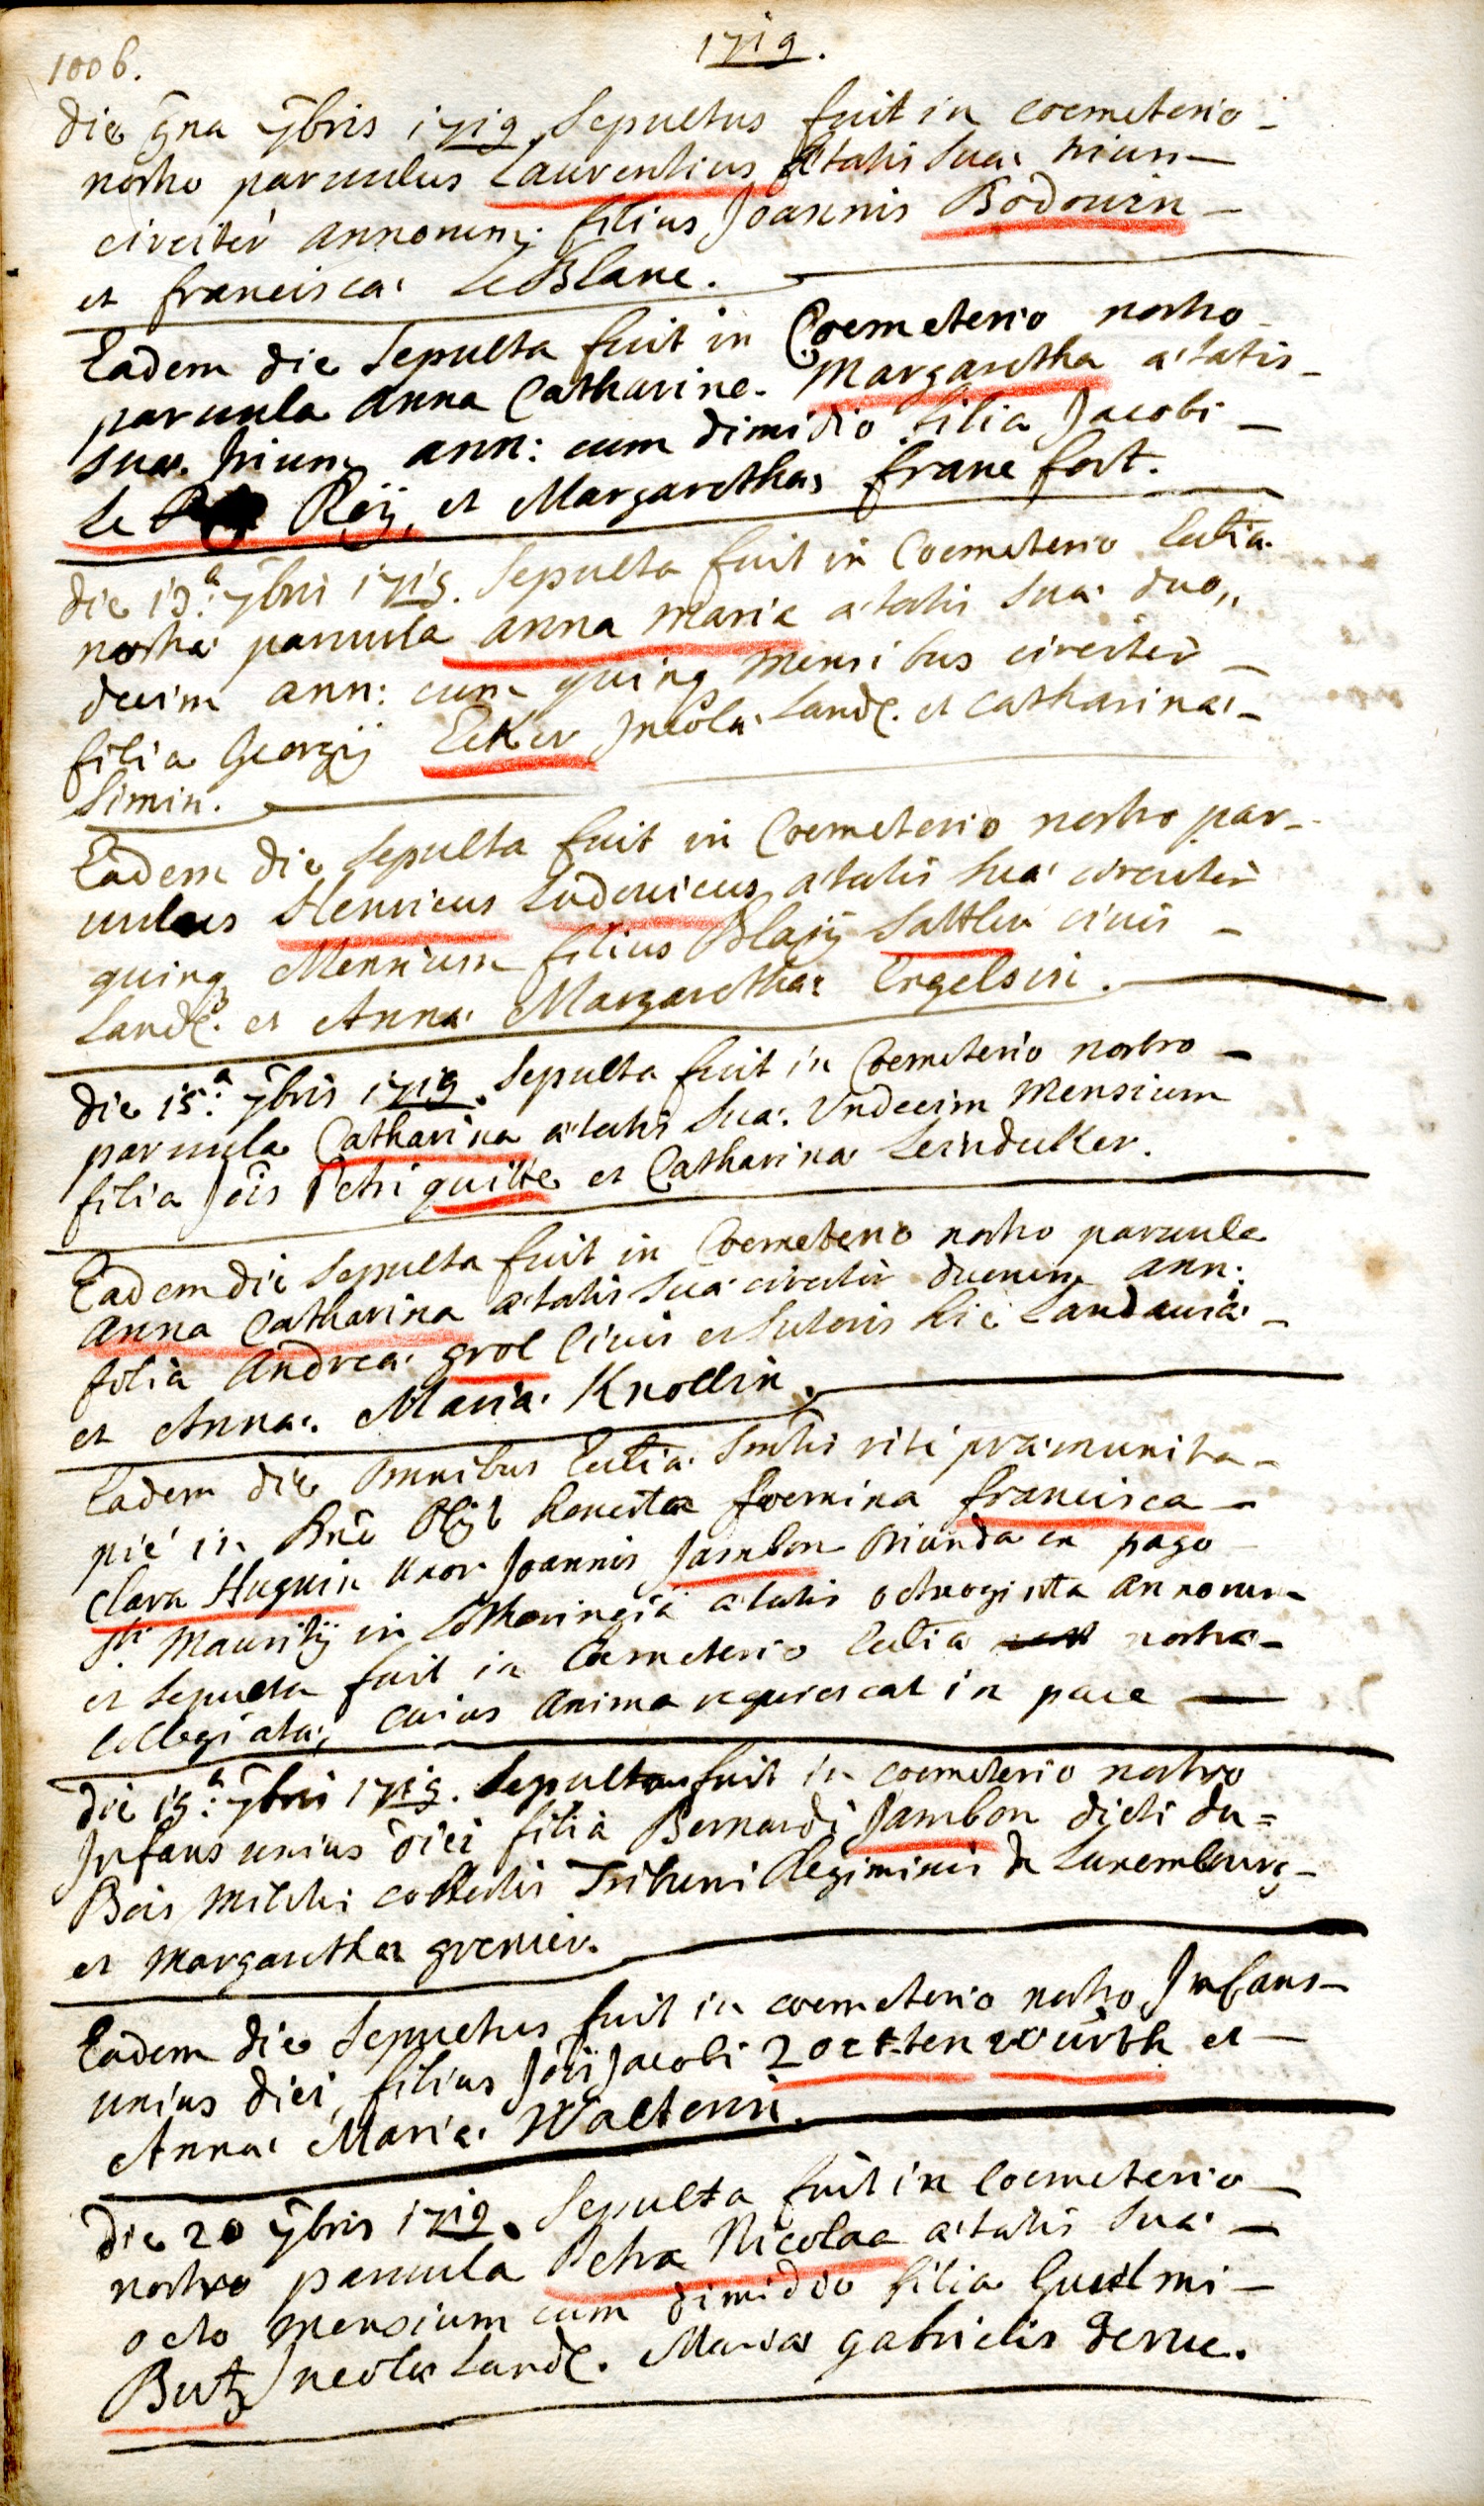 1006.
1719.
die 9na 7bris 1719 Sepultus fuit in coemeterio
nostro parvulus Laurentius ætatis suæ trium
circiter annorum, filius Joannis Bodouin
et franciscæ LeBlanc.
Eadem die Sepulta fuit in Coemeterio nostro
parvula Anna Catharine. Margaretha ætatis
suæ. trium ann: cum dimidio filia Jacobi
Le Reÿ, et Margarethæ francfort.
die 13.a 7bris 1719. Sepulta fuit in Coemeterio Eccliæ
nostræ parvula anna maria ætatis suæ duo,,
decim ann: cum quinq mensibus circiter
filia Georgij Ecker Jncolæ Land. et Catharinæ
Simin.
Eadem die Sepulta fuit in Coemeterio nostro par-
vulus Henricus Ludovicus ætatis suæ circiter
quinq Mensium filius Blasij Sattler civis
Land. et Annæ Margarethæ Engelsin.
die 15.a 7bris 1719. Sepulta fuit in Coemeterio nostro
parvula Catharina ætatis suæ. Undecim Mensium
filia Jois Petri quitte et Catharina Leindecker.
Eadem die Sepulta fuit in Coemeterio nostro parvula
Anna Catharina ætatis suæ circiter duorum ann:
filia Andreæ grol Civis et Sutoris hic Landaviæ
et Annæ. Mariæ. Knollin.
Eadem die Omnibus Eccliæ Smtis rite præmunita
pie in Dno Obijt honesta foemina francisca
Clara Huguin uxor Joannis Jambon oriunda ex pago
Sti Mauritij in Lotharingia ætatis octuoginta annorum
et Sepulta fuit in Coemeterio Eccliæ nostræ
Collegiatæ, cuius anima requiescat in pace
die 19.a 7bris 1719. Sepultus fuit in coemeterio nostro
Jnfans unius diei filia Bernardi Jambon dicti du=
Bois militis cohortis Tribuni Regiminis de Luxembourg
et Margarethæ grenier.
Eadem die Sepultus fuit in coemeterio nostro Jnfans
unius diei, filius Jois Jacobi Zottenwürth et
Annæ Mariæ Walterin.
die 20 7bris 1719. Sepulta fuit in Coemeterio
nostro parvula Petra Nicolaa ætatis suæ
octo mensium cum dimidio filia Guilmi
Butz Jncolæ Land. Mariæ gabrielis derue.